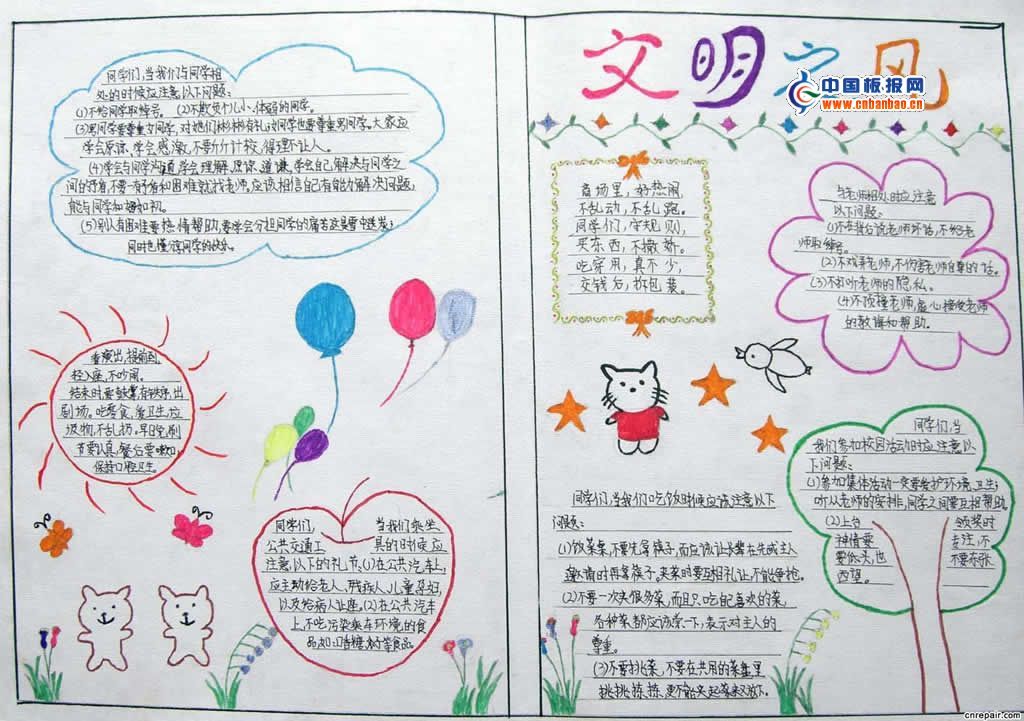 同学们,当我们与同学相
处的时候应注意以下问题:
(1)不给同学取绰号。 (2)不欺负个儿小、体弱的同学。
(3)男同学要尊重女同学,对她们彬彬有礼,女同学也要尊重男同学。大家应
学会原谅,学会感激,不要斤斤计较,得理不让人。
(4)学会与同学沟通,学会理解,原谅,道谦,学会自己解决与同学之
间的矛盾,不要一有矛盾和困难就找老师,应该相信自己有能力解决问题,
能与同学和好如初。
(5)别人有困难要热情帮助,要学会分担同学的痛苦
同时也懂
看演出,提前到,
轻入座,不吵闹。
结束时要鼓掌,有秩序,出
剧场。吃零食,爱卫生,垃
圾物,不乱扔。早晚,刷
牙要认真,餐后要嗽口,
保持口腔卫生。
同学们, 当我们乘坐
公共交通工具的时候应
注意,以下的礼节:(1)在公共汽车上,
应主动给老人、残疾人、儿童、孕妇,
以及给病人让座。(2)在公共汽车
上,不吃污染乘车环境的食
品,如:口香糖
文明之风
中国板报网
www.cnbanbao.cn
商场里,好热闹,
不乱动,不乱跑。
同学们,守规则,
买东西,不撒娇。
吃穿用,真不少,
交钱后,拆包装。
与老师相处时应注意
以下问题:
(1)不在背后说老师坏话,不给老
师取绰号。
(2)不戏弄老师,不伤害老师自尊的话。
(3)不打听老师的隐私。
(4)不顶撞老师,虚心接受老师
的教诲和帮助。
同学们,当我们吃饭时候应该注意以下
问题:
(1)饭菜来,不要先拿筷子,而应该让长辈在先或主人
邀请时再拿筷子。夹菜时要互相礼让,不能争抢。
(2)不要一次夹很多菜,而且只吃自己喜欢的菜,
各种菜都应该尝一下,表示对主人的
尊重。
(3)不要挑菜,不要在共用的菜盘里
挑挑拣拣,更不能夹起菜来又放下。
同学们,当
我们参加校园活动时应注意以
下问题:
(1)参加集体活动一定要爱护环境,卫生;
听从老师的安排,同学之间要互相帮助
(2)上台领奖时
神情要专注,不
要低头,也不要东张
西望。
cnrepair.com